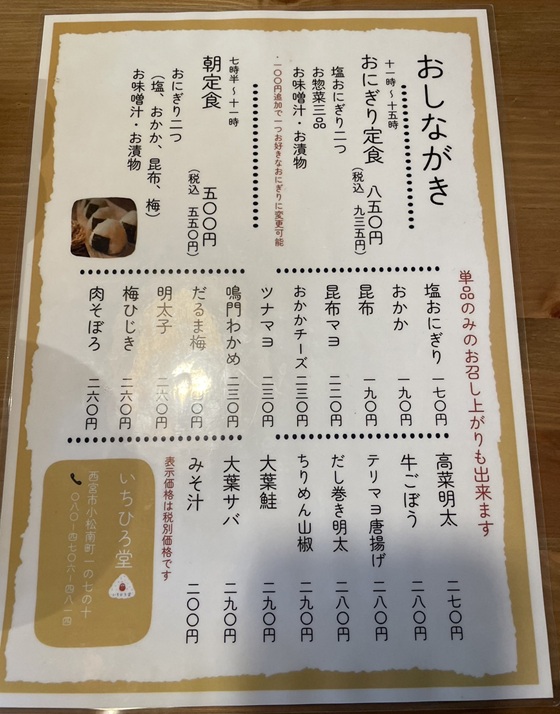 おしながき
十一時〜十五時
おにぎり定食 八五〇円
(税込 九三五円)
塩おにぎり二つ
お惣菜三品
お味噌汁・お漬物
・一〇〇円追加で一つお好きなおにぎりに変更可能
七時半〜十一時
朝定食 五〇〇円
(税込 五五〇円)
おにぎり二つ
(塩、おかか、昆布、梅)
お味噌汁・お漬物
単品のみのお召し上がりも出来ます
塩おにぎり 一七〇円
おかか 一九〇円
昆布 一九〇円
昆布マヨ 二二〇円
おかかチーズ 二三〇円
ツナマヨ 二三〇円
鳴門わかめ 二三〇円
だるま梅 二四〇円
明太子 二六〇円
梅ひじき 二六〇円
肉そぼろ 二六〇円
高菜明太 二七〇円
牛ごぼう 二八〇円
テリマヨ唐揚げ 二八〇円
だし巻き明太 二八〇円
ちりめん山椒 二九〇円
大葉鮭 二九〇円
大葉サバ 二九〇円
みそ汁 二〇〇円
表示価格は税別価格です
いちひろ堂
西宮市小松南町一の七の十
〇八〇ー四七〇六ー四八一四